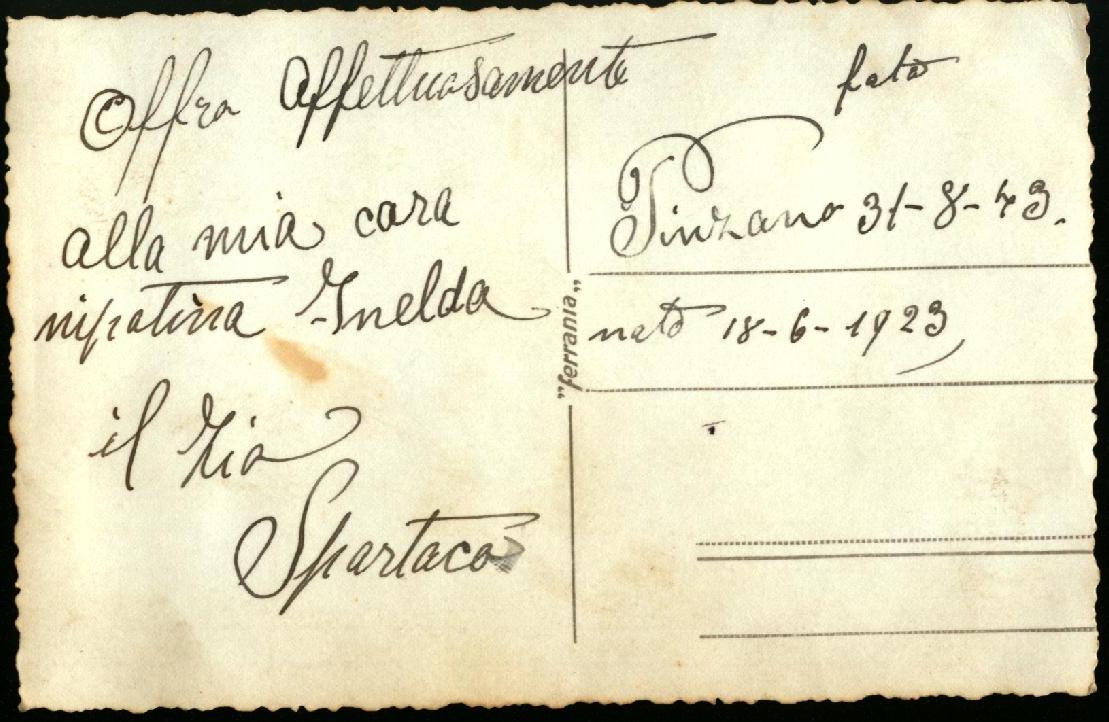 Offro Affettuosamente
alla mia cara
nipotina Imelda
il Zio
Spartaco
"ferrania"
fato
Pinzano 31-8-43.
nato 18-6-1923